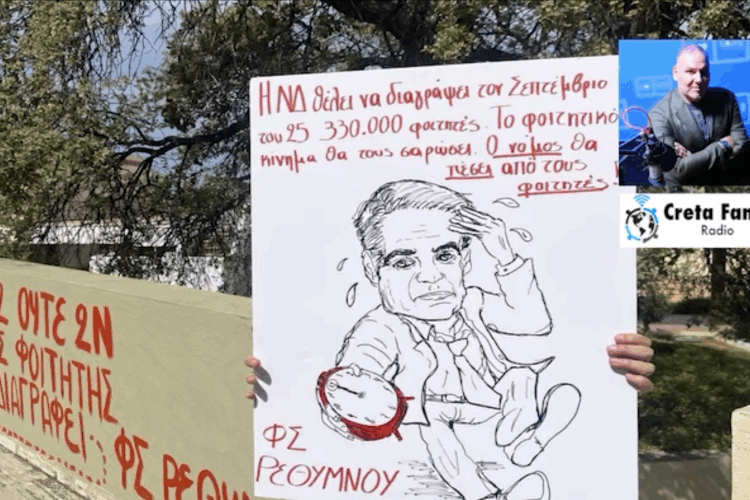 Η ΝΔ θέλει να διαγράψει τον Σεπτέμβριο
του 25 330.000 φοιτητές. Το φοιτητικό
κίνημα θα τους σαρώσει. Ο νόμος θα
πέσει από τους
φοιτητές!
ΦΣ
ΡΕΘΥΜΝΟΥ
ΟΥΤΕ ΩΝ
ΦΟΙΤΗΤΗΣ
ΔΙΑΓΡΑΦΕΙ
ΦΣ ΡΕΘΥΜ
Creta Fam
Radio